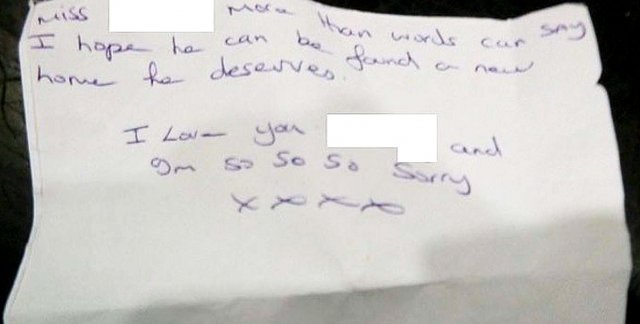 Miss More than words can say
I hope he can be found a new
home he deserves.
I Love you and
I'm so so so sorry
x x x x